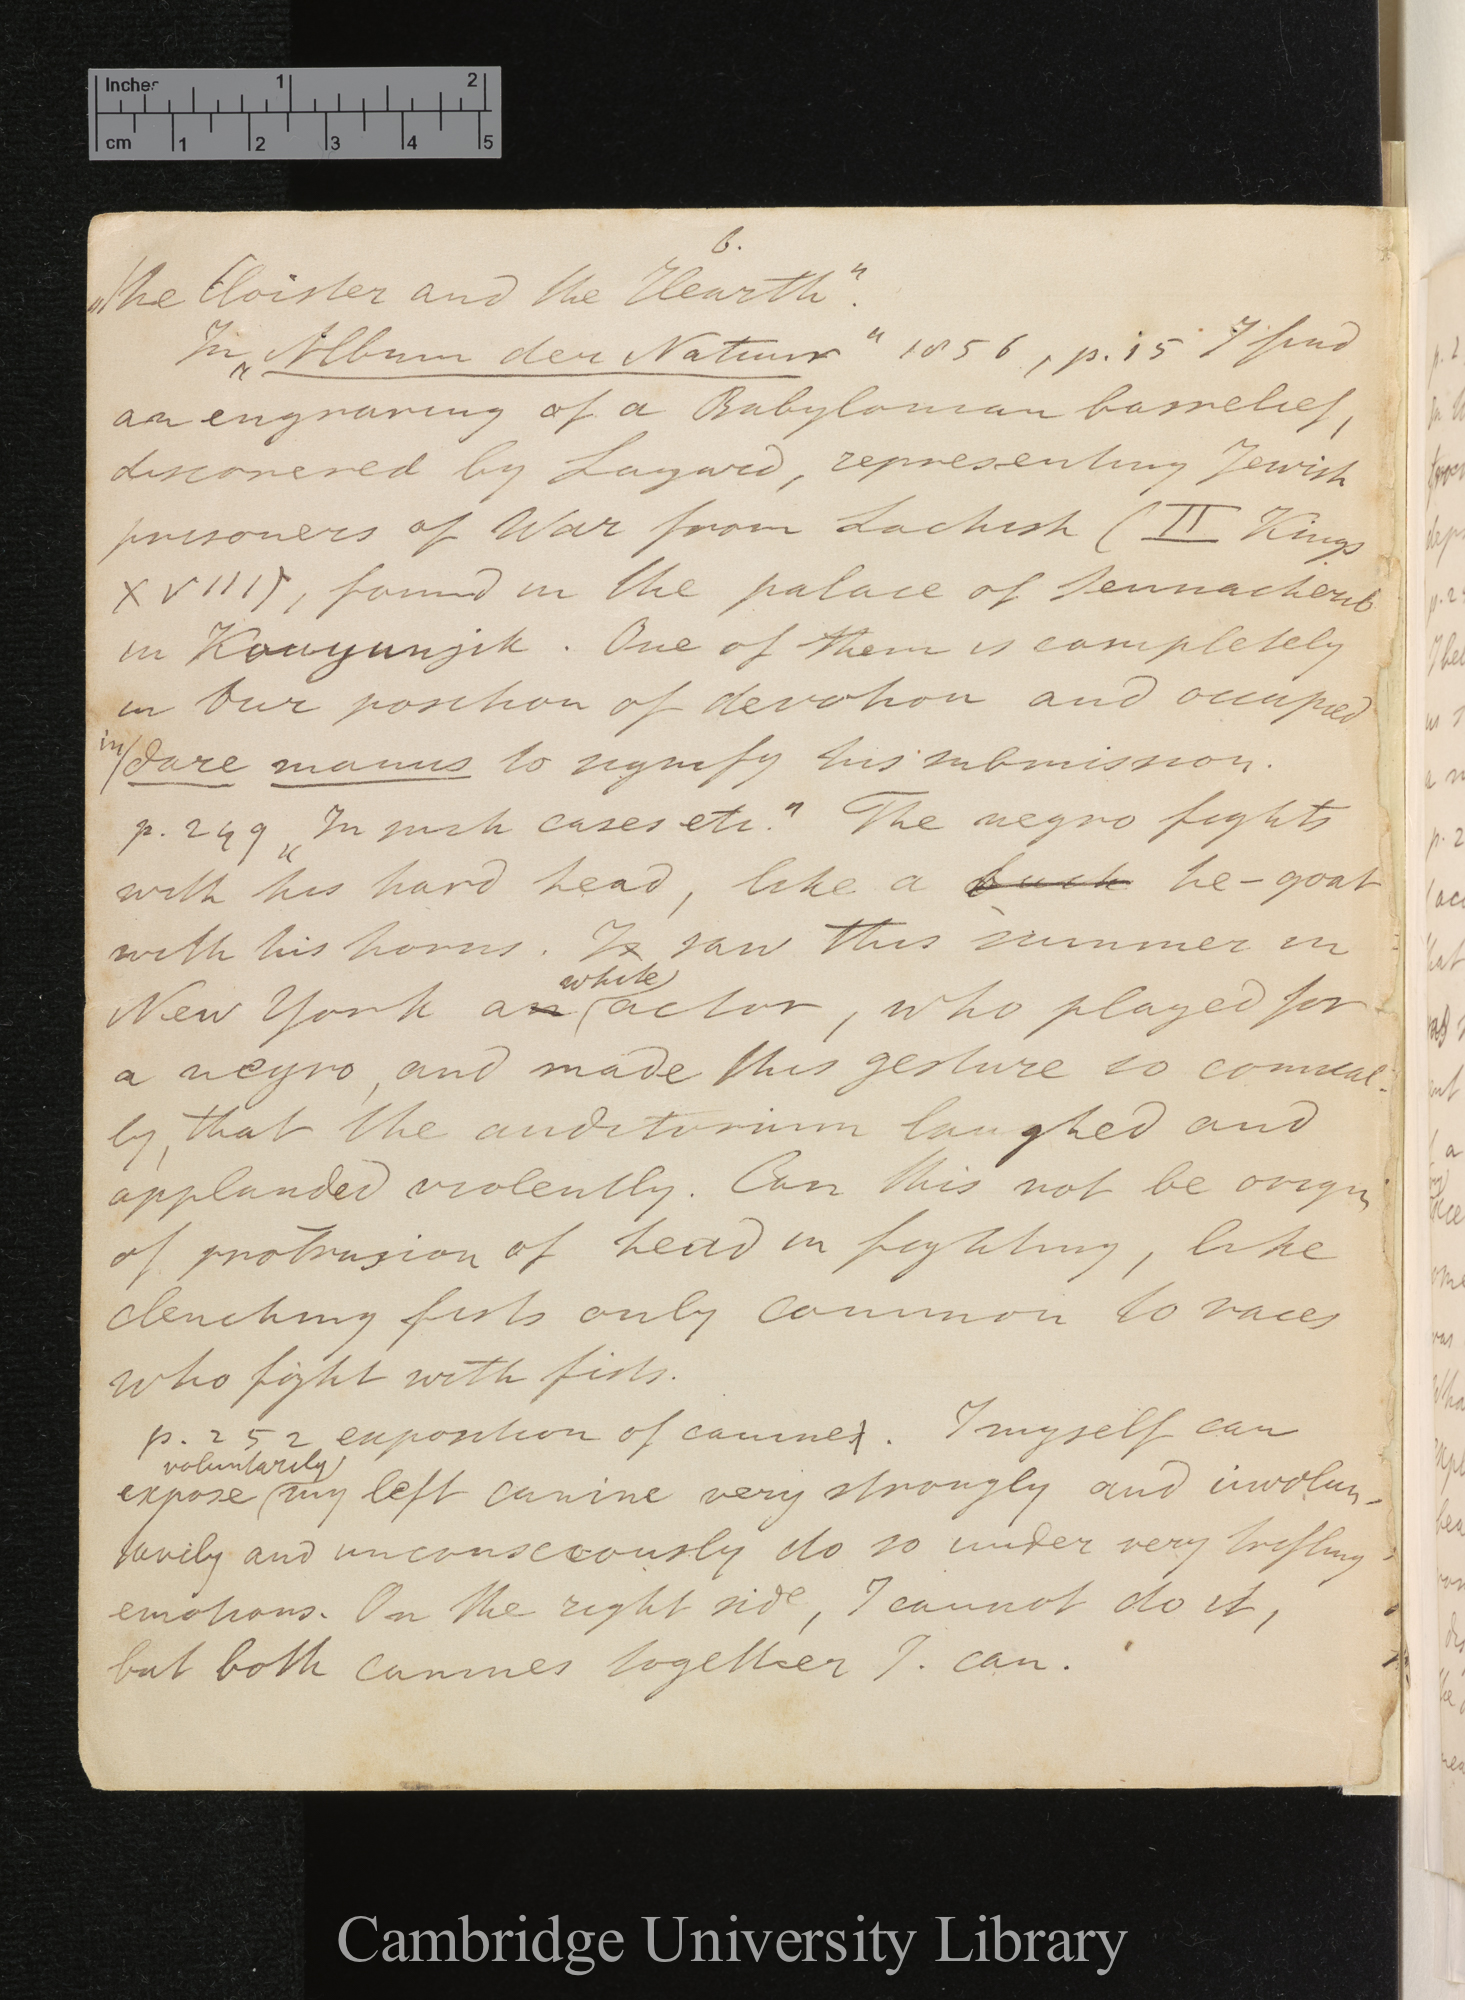 Inches 1 2
cm 1 2 3 4 5
6.
„the Cloister and the Hearth".
In „Album der Natuur" 1856, p. 15 I find
an engraving of a Babylonian basrelief,
discovered by Layard, representing Jewish
prisoners of War from Lachish (II Kings
XVIII), found in the palace of Sennacherib
in Kouyunjik. One of them is completely
in our position of devotion and occupied
in dare manus to signify his submission.
p. 249 „In such cases etc." The negro fights
with his hard head, like a buck he-goat
with his horns. I saw this summer in
New York an white actor, who played for
a negro, and made this gesture so comical-
ly, that the auditorium laughed and
applauded violently. Can this not be origin
of protrusion of head in fighting, like
clenching fists only common to races
who fight with fists.
p. 252 exposition of canines. I myself can
expose voluntarily my left canine very strongly and involun-
tarily and unconsciously do so under very trifling
emotions. On the right side, I cannot do it,
but both canines together I. can.
Cambridge University Library